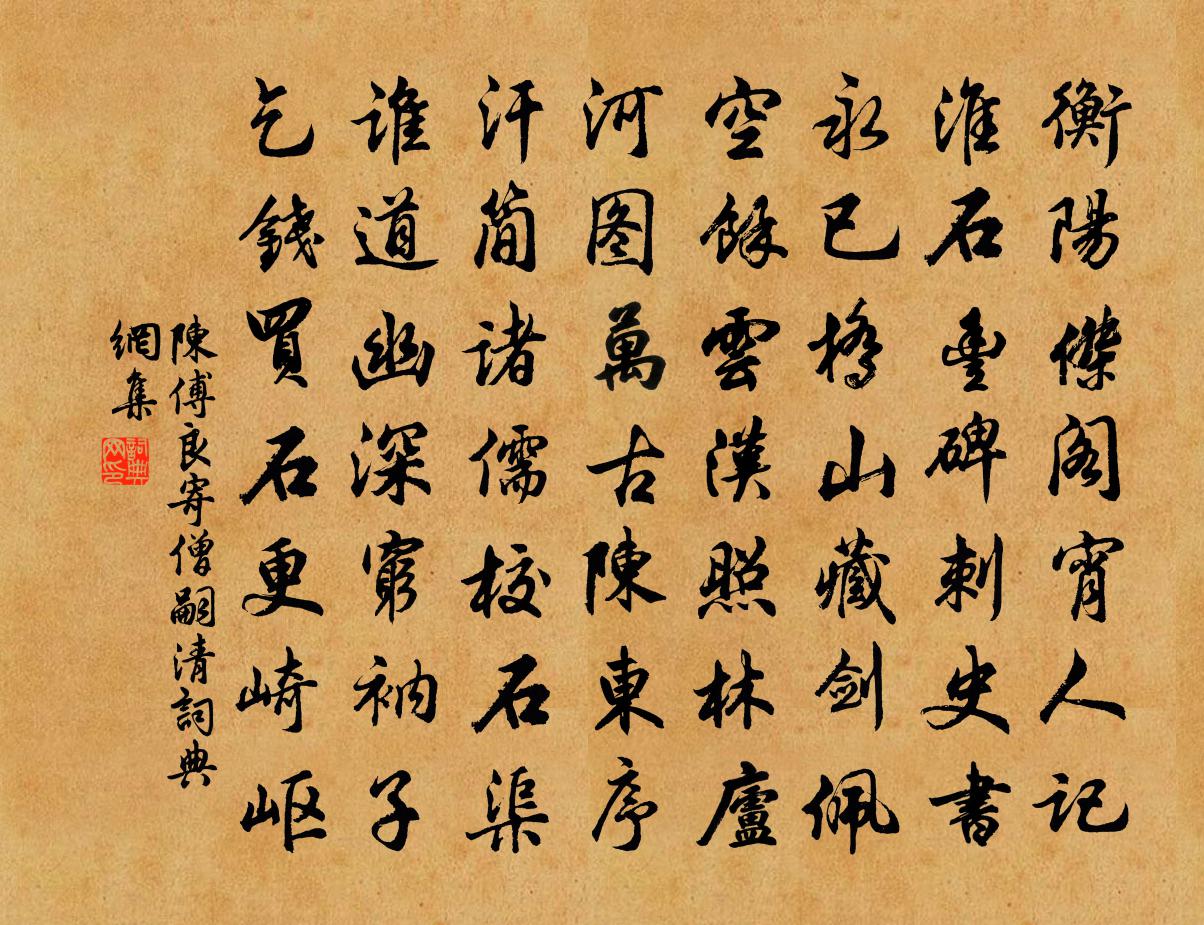 衡陽傑阁宵人記
淮石豊碑刺史書
永已橋山藏剑佩
空餘雲漢照林廬
河图萬古陳東序
汗简諸儒校石渠
谁道幽深窮衲子
乞錢買石更崎岖
陳傅良寄僧嗣清詞典
網集
詞典
网印